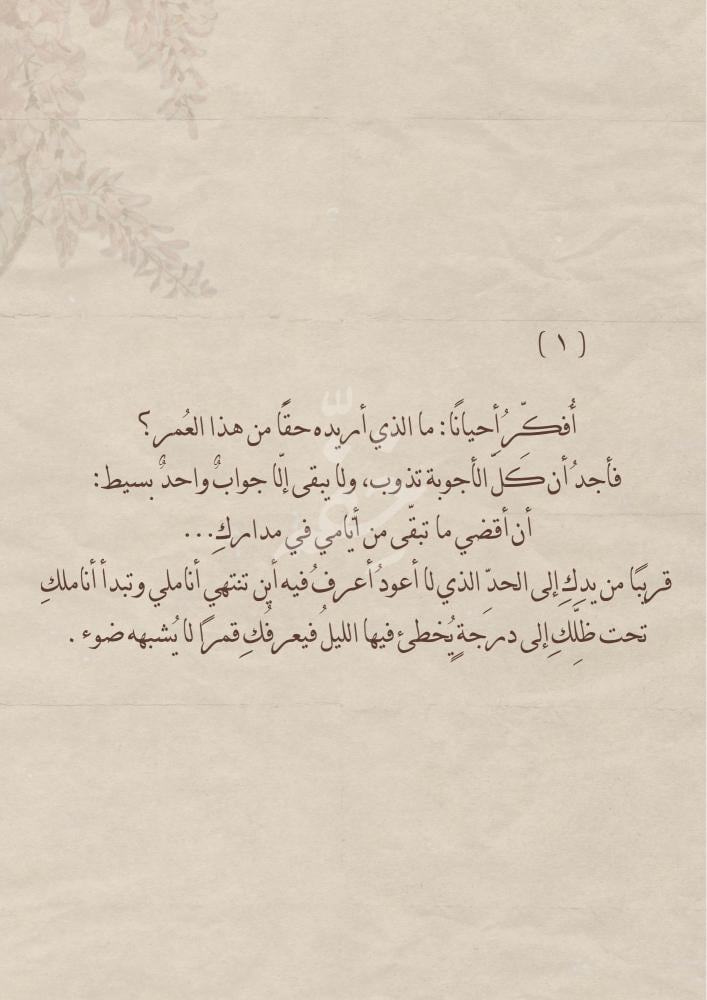 ( ١ )
أُفكّرُ أحيانًا: ما الذي أريده حقًا من هذا العُمر؟
فأجدُ أن كلَّ الأجوبة تذوب، ولا يبقى إلّا جوابٌ واحدٌ بسيط:
أن أقضي ما تبقّى من أيّامي في مداركِ...
قريبًا من يدِكِ إلى الحدِّ الذي لا أعودُ أعرفُ فيه أين تنتهي أناملي وتبدأ أناملكِ
تحت ظلِّكِ إلى درجةٍ يُخطئ فيها الليلُ فيعرفُكِ قمرًا لا يُشبهه ضوء .